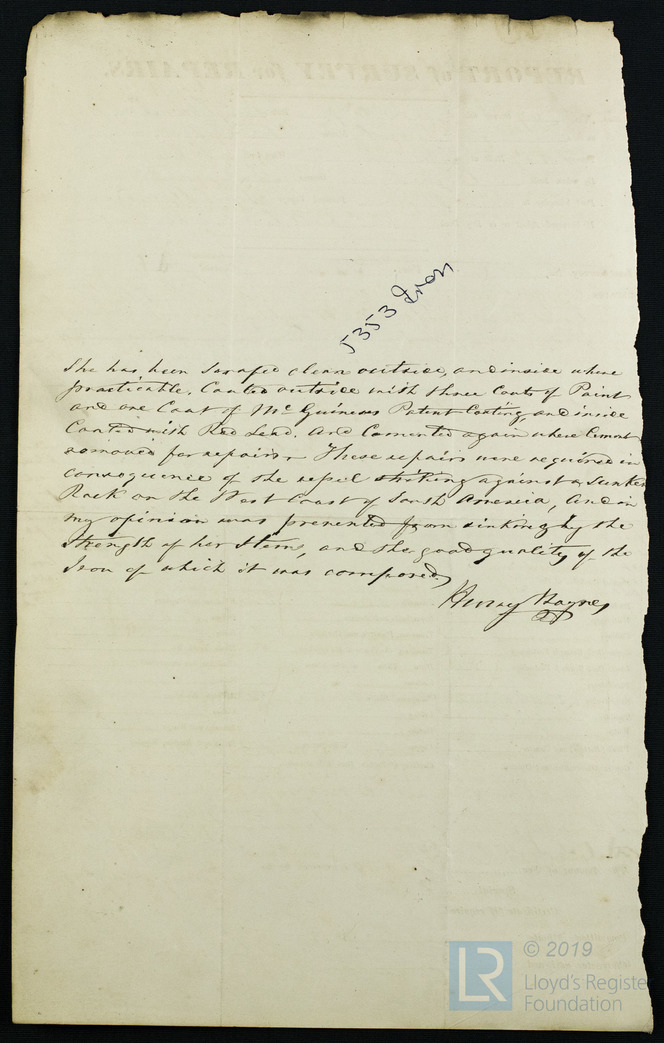 5353 Iron
She has been Scraped clean outside, and inside where
practicable, Coated outside with three Coats of Paint
and one Coat of Mc Guiness Patent Coating, and inside
Coated with Red Lead. And Cemented again where Cement
removed for repairs. These repairs were required in
consequence of the vessel striking against a Sunken
Rock on the West Coast of South America, and in
my opinion was prevented from sinking by the
Strength of her Stem, and the good quality of the
Iron of which it was composed.
Henry Haynes
LR © 2019
Lloyd's Register
Foundation